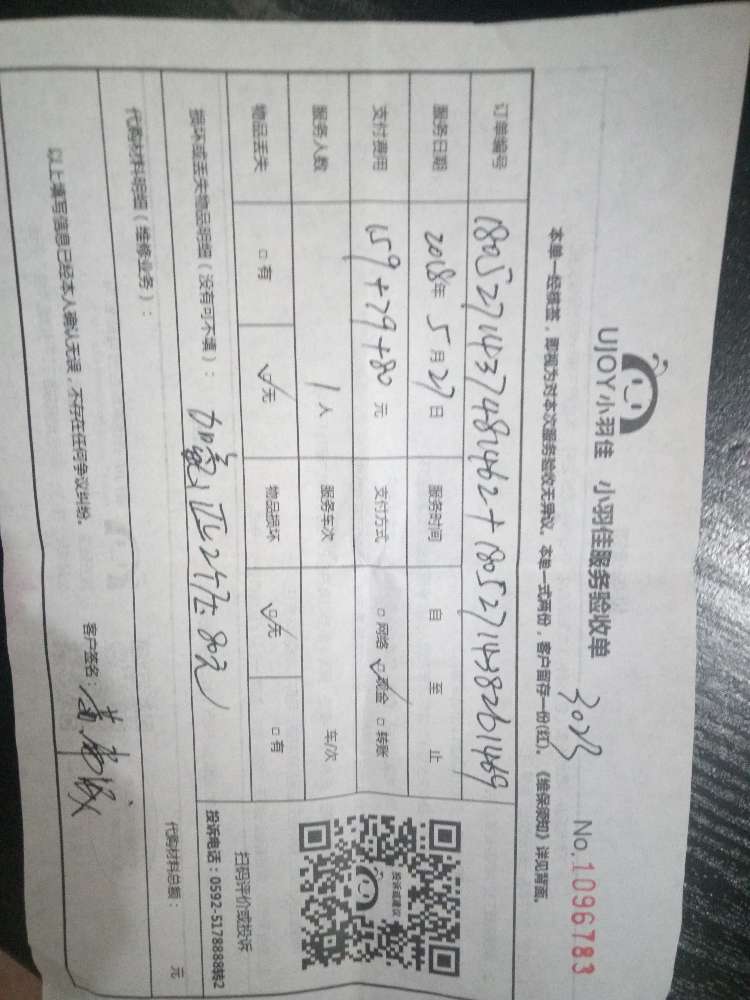 UJOY小羽佳 小羽佳服务验收单
3023 No.1096783
本单一经核签，即视为对本次服务验收无异议。本单一式两份，客户留存一份(红)。《维保须知》详见背面。
订单编号 1805271437481462+1805271438261469
服务日期 2018年5月27日 服务时间 自 至 止
支付费用 159+79+80元 支付方式 □网络 ☑现金 □转账
服务人数 1人 服务车次 车/次
物品丢失 □有 ☑无 物品损坏 ☑无 □有
损坏或丢失物品明细（没有可不填）： 加 2 80元
扫码评价或投诉
投诉电话：0592-5178888转2
投诉或建议
代购材料明细（维修业务）： 代购材料总额： 元
以上填写信息已经本人确认无误，不存在任何争议纠纷。 客户签名：